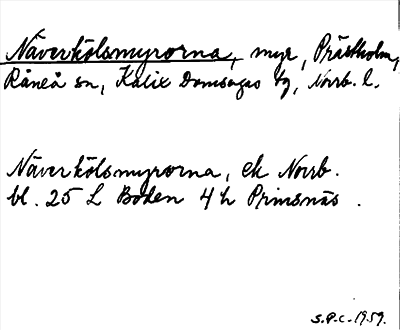 Näverkölsmyrorna, myr, Prästholm,
Råneå sn, Kalix Domsagas tg, Norrb. l.
Näverkölsmyrorna, ek Norrb.
bl. 25 L Boden 4 h Prinsnäs.
S.P.C. 1959.